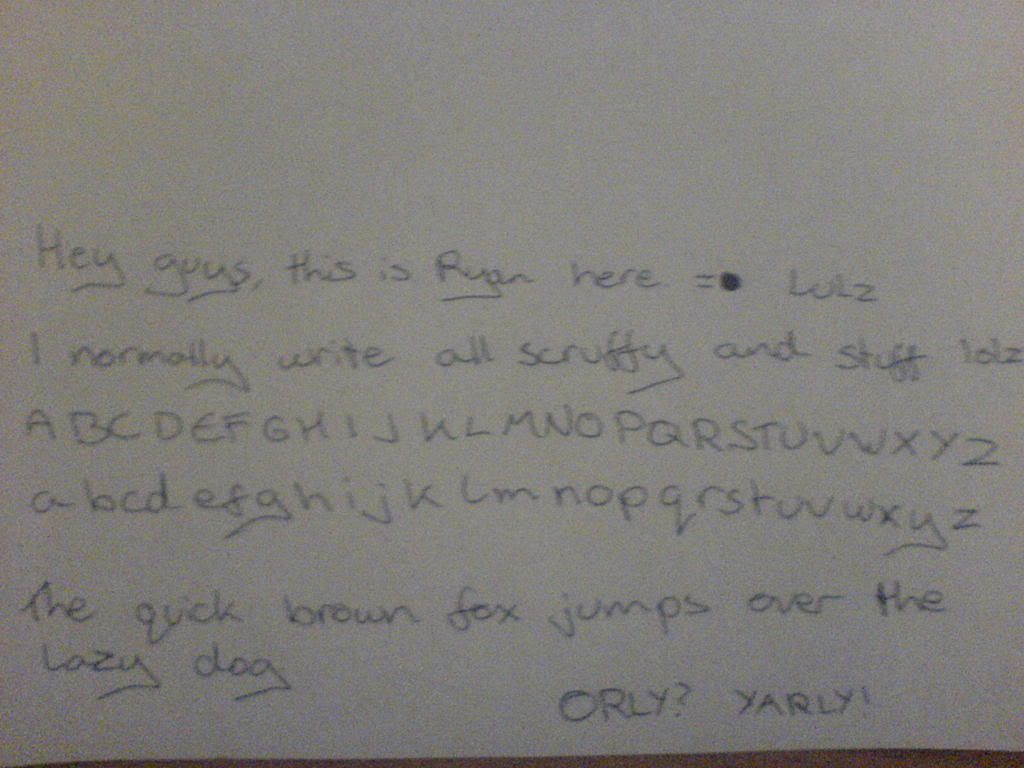 Hey guys, this is Ryan here =● LuLz
I normally write all scruffy and stuff lolz
ABCDEFGHIJKLMNOPQRSTUVWXYZ
abcdefghijklmnopqrstuvwxyz
The quick brown fox jumps over the
Lazy dog
ORLY? YARLY!